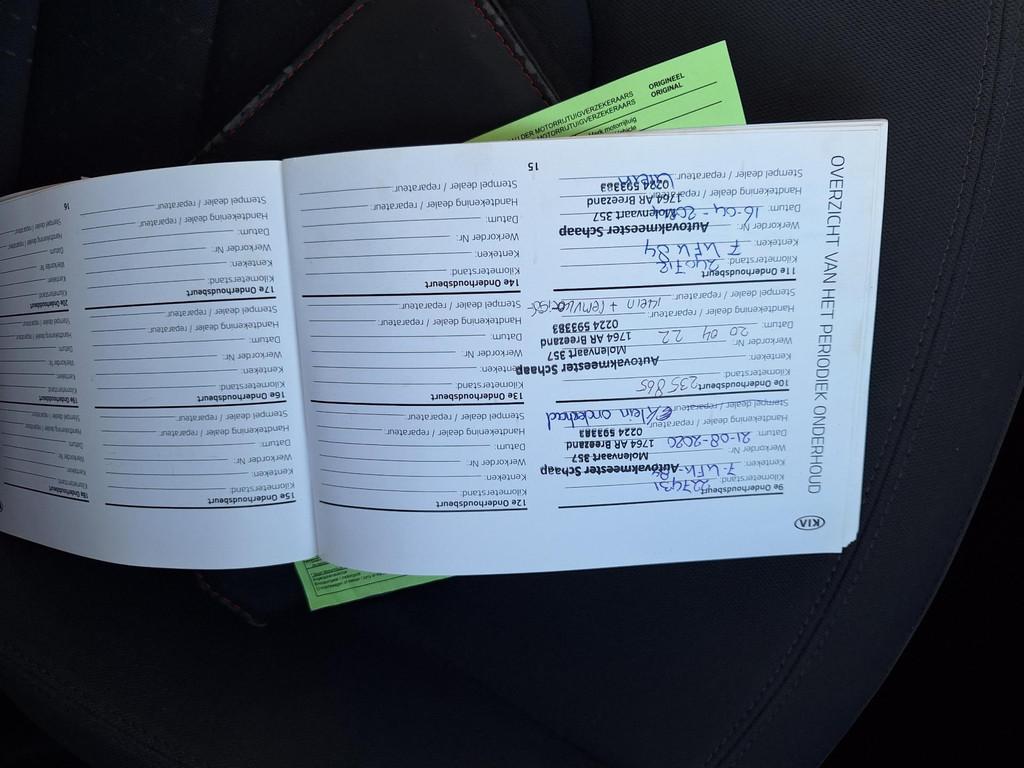 KIA
OVERZICHT VAN HET PERIODIEK ONDERHOUD
9e Onderhoudsbeurt
Kilometerstand: 227431
Kenteken: 7-
Autovakmeester Schaap
Werkorder Nr:
Molenvaart 357
Datum: 21-08-2020
1764 AR Breezand
Handtekening dealer / reparateur:
0224 593383
Stempel dealer / reparateur:
Klein onderhoud
10e Onderhoudsbeurt
Kilometerstand: 235865
Kenteken:
Autovakmeester Schaap
Werkorder Nr:
Molenvaart 357
Datum: 20 04 22
1764 AR Breezand
Handtekening dealer / reparateur:
0224 593383
Stempel dealer / reparateur:
klein + remvloeistof
11e Onderhoudsbeurt
Kilometerstand: 240718
Kenteken:
Werkorder Nr:
Autovakmeester Schaap
Datum: 16-04-
Molenvaart 357
Handtekening dealer / reparateur:
1764 AR Breezand
Stempel dealer / reparateur:
0224 593383
Klein
12e Onderhoudsbeurt
Kilometerstand:
Kenteken:
Werkorder Nr:
Datum:
Handtekening dealer / reparateur:
Stempel dealer / reparateur:
13e Onderhoudsbeurt
Kilometerstand:
Kenteken:
Werkorder Nr:
Datum:
Handtekening dealer / reparateur:
Stempel dealer / reparateur:
14e Onderhoudsbeurt
Kilometerstand:
Kenteken:
Werkorder Nr:
Datum:
Handtekening dealer / reparateur:
Stempel dealer / reparateur:
15
15e Onderhoudsbeurt
Kilometerstand:
Kenteken:
Werkorder Nr:
Datum:
Handtekening dealer / reparateur:
Stempel dealer / reparateur:
16e Onderhoudsbeurt
Kilometerstand:
Kenteken:
Werkorder Nr:
Datum:
Handtekening dealer / reparateur:
Stempel dealer / reparateur:
17e Onderhoudsbeurt
Kilometerstand:
Kenteken:
Werkorder Nr:
Datum:
Handtekening dealer / reparateur:
Stempel dealer / reparateur:
18e Onderhoudsbeurt
Kilometerstand:
Kenteken:
Werkorder Nr:
Datum:
Handtekening dealer / reparateur:
Stempel dealer / reparateur:
19e Onderhoudsbeurt
Kilometerstand:
Kenteken:
Werkorder Nr:
Datum:
Handtekening dealer / reparateur:
Stempel dealer / reparateur:
20e Onderhoudsbeurt
Kilometerstand:
Kenteken:
Werkorder Nr:
Datum:
Handtekening dealer / reparateur:
Stempel dealer / reparateur:
16
DER MOTORRIJTUIGVERZEKERAARS
MOTORRIJTUIGVERZEKERAARS
ORIGINEEL
ORIGINAL
Merk motorrijtuig